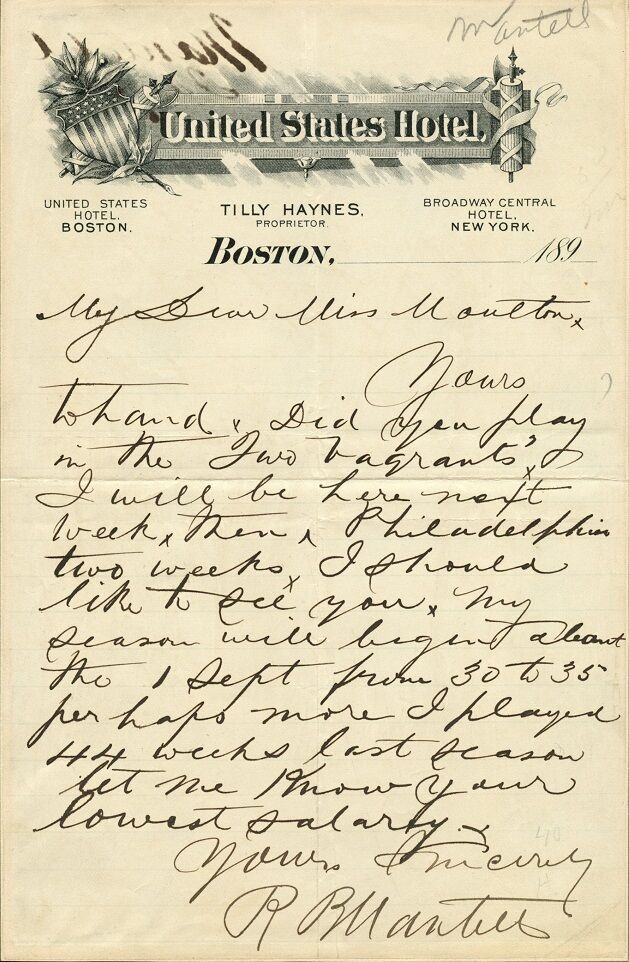 Mantell
United States Hotel.
UNITED STATES
HOTEL,
BOSTON.
TILLY HAYNES,
PROPRIETOR.
BROADWAY CENTRAL
HOTEL,
NEW YORK.
BOSTON, 189
My Dear Miss Moulton x
Yours
to hand x Did you play
in the Two Vagrants" x
I will be here next
week x then x Philadelphia
two weeks x I should
like to see you x My
season will begin about
the 1 Sept from 30 to 35
perhaps more I played
44 weeks last season
let me Know your
lowest salary. x
Yours Sincerely
R B Mantell